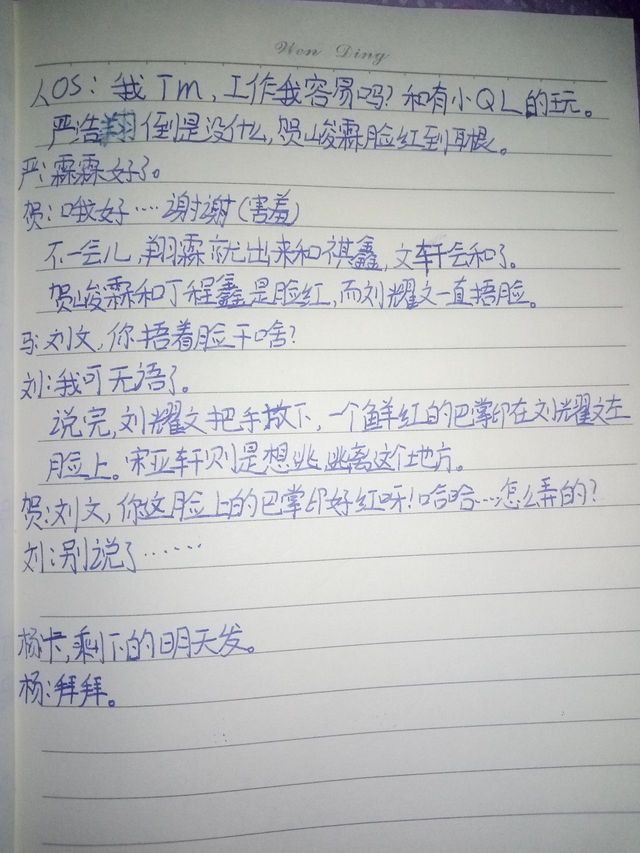 Wen Ding
人OS：我Tm，工作我容易吗？和有小QL的玩。
严浩翔倒是没什么，贺峻霖脸红到耳根。
严：霖霖好了。
贺：哦好····谢谢(害羞)
不一会儿，翔霖就出来和祺鑫，文轩会和了。
贺峻霖和丁程鑫是脸红，而刘耀文一直捂脸。
马：刘文，你捂着脸干啥？
刘：我可无语了。
说完，刘耀文把手放下，一个鲜红的巴掌印在刘耀文左
脸上。宋亚轩则是想逃，逃离这个地方。
贺：刘文，你这脸上的巴掌印好红呀！哈哈····怎么弄的？
刘：别说了······
杨卡，剩下的明天发。
杨：拜拜。